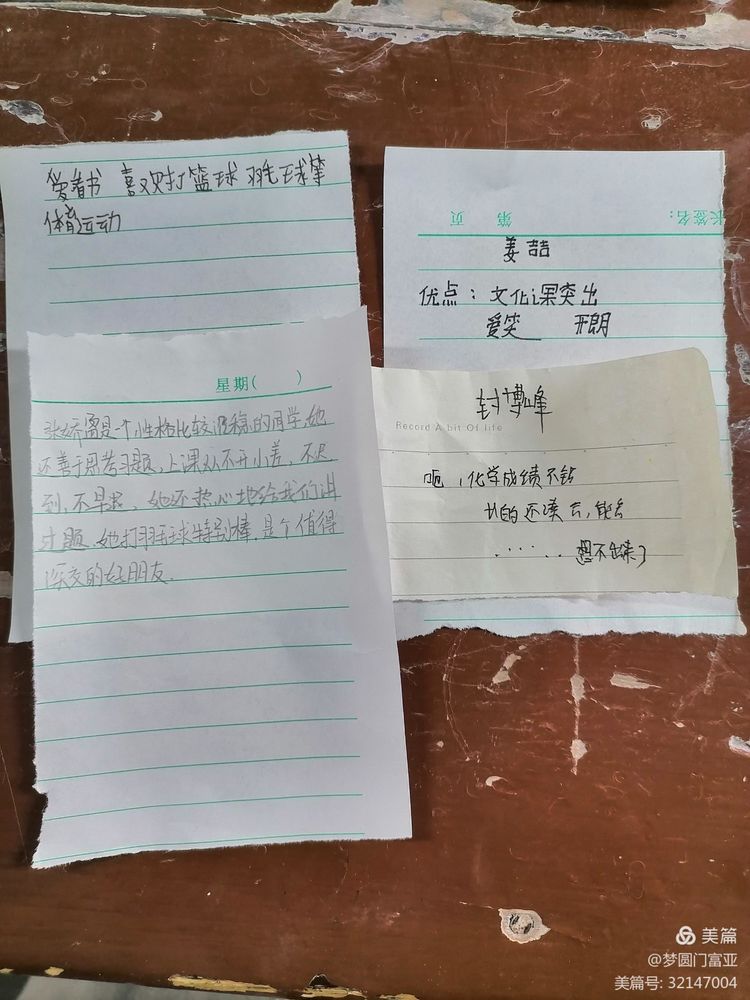 爱看书 喜欢打篮球 羽毛球等
体育运动
长签名:
第 页
姜喆
优点：文化课突出
爱笑 开朗
星期( )
是一个性格比较沉稳的同学,她
还善于思考习题,上课从不开小差,不迟
到,不早退,她还热心地给我们讲
过题,她打羽毛球特别棒,是个值得
深交的好朋友.
封博峰
Record A bit Of life
呃,化学成绩不错
还凑合,能
......想不出来了
美篇
@梦圆门富亚
美篇号: 32147004